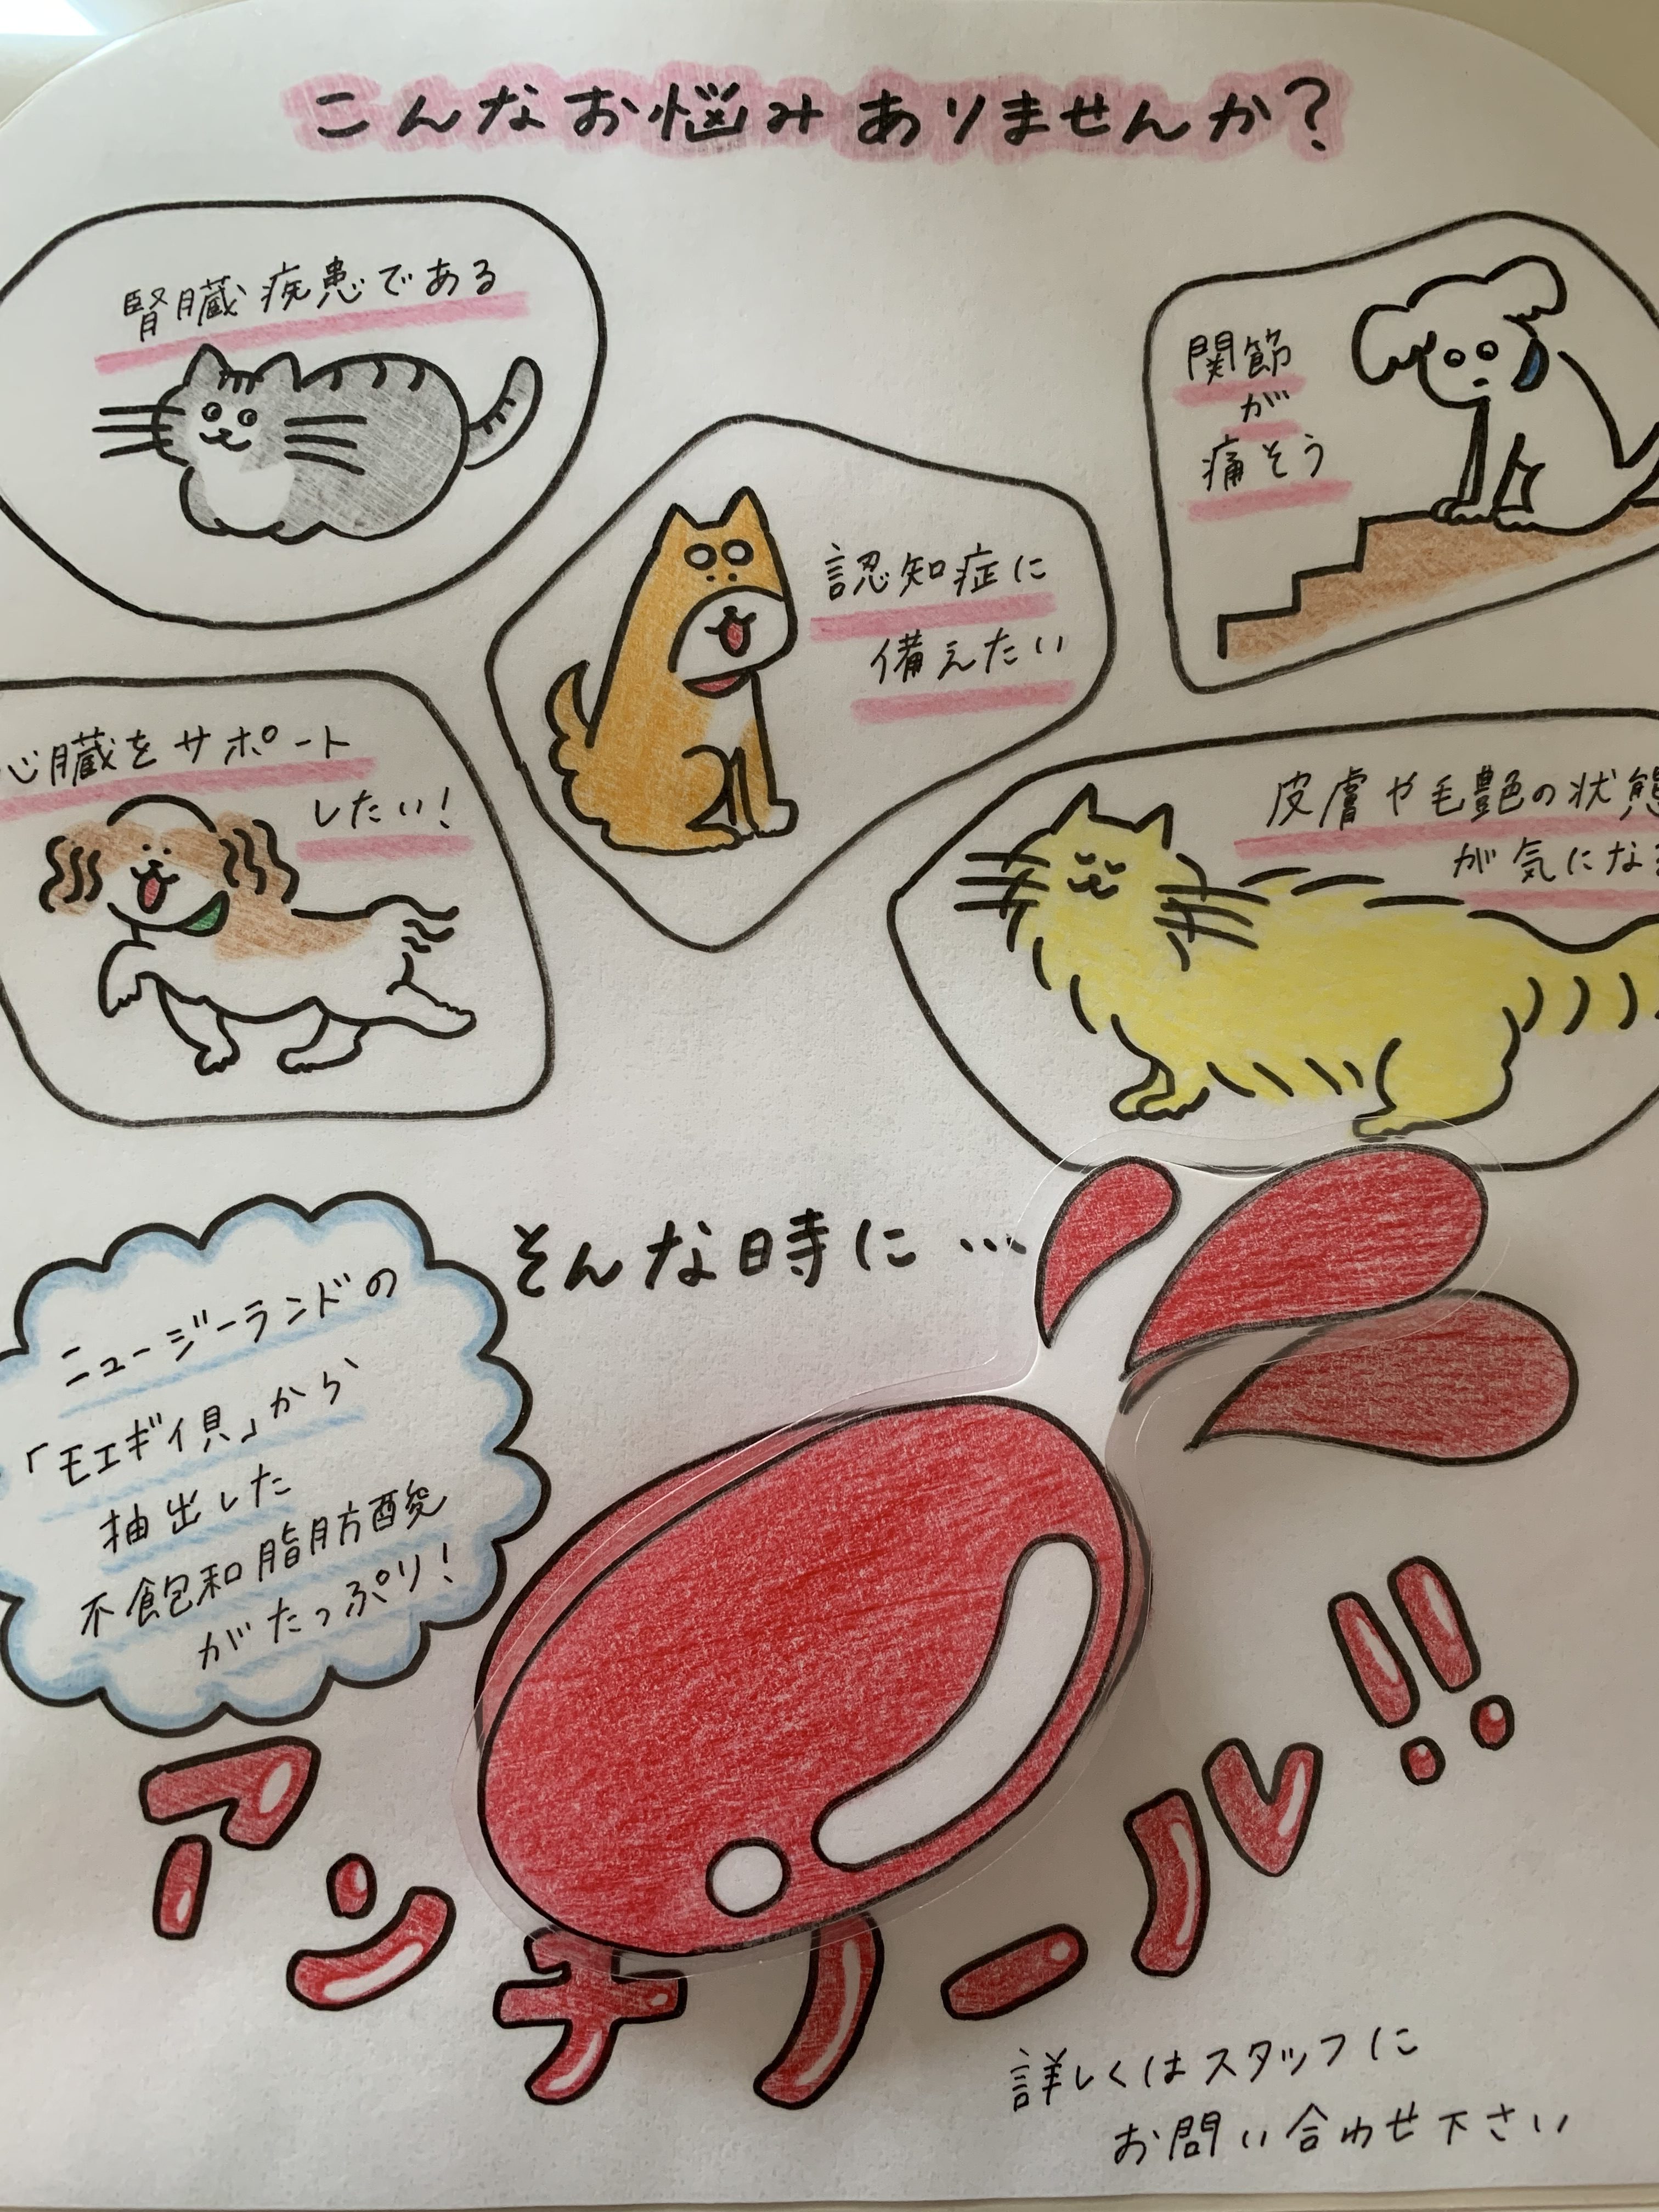 こんなお悩みありませんか?
腎臓疾患である
関節
が
痛そう
認知症に
備えたい
心臓をサポート
したい!
皮膚や毛艶の状態
が気になる
そんな時に…
ニュージーランドの
「モエギイ貝」から
抽出した
不飽和脂肪酸
がたっぷり!
アンチリール!!
詳しくはスタッフに
お問い合わせ下さい